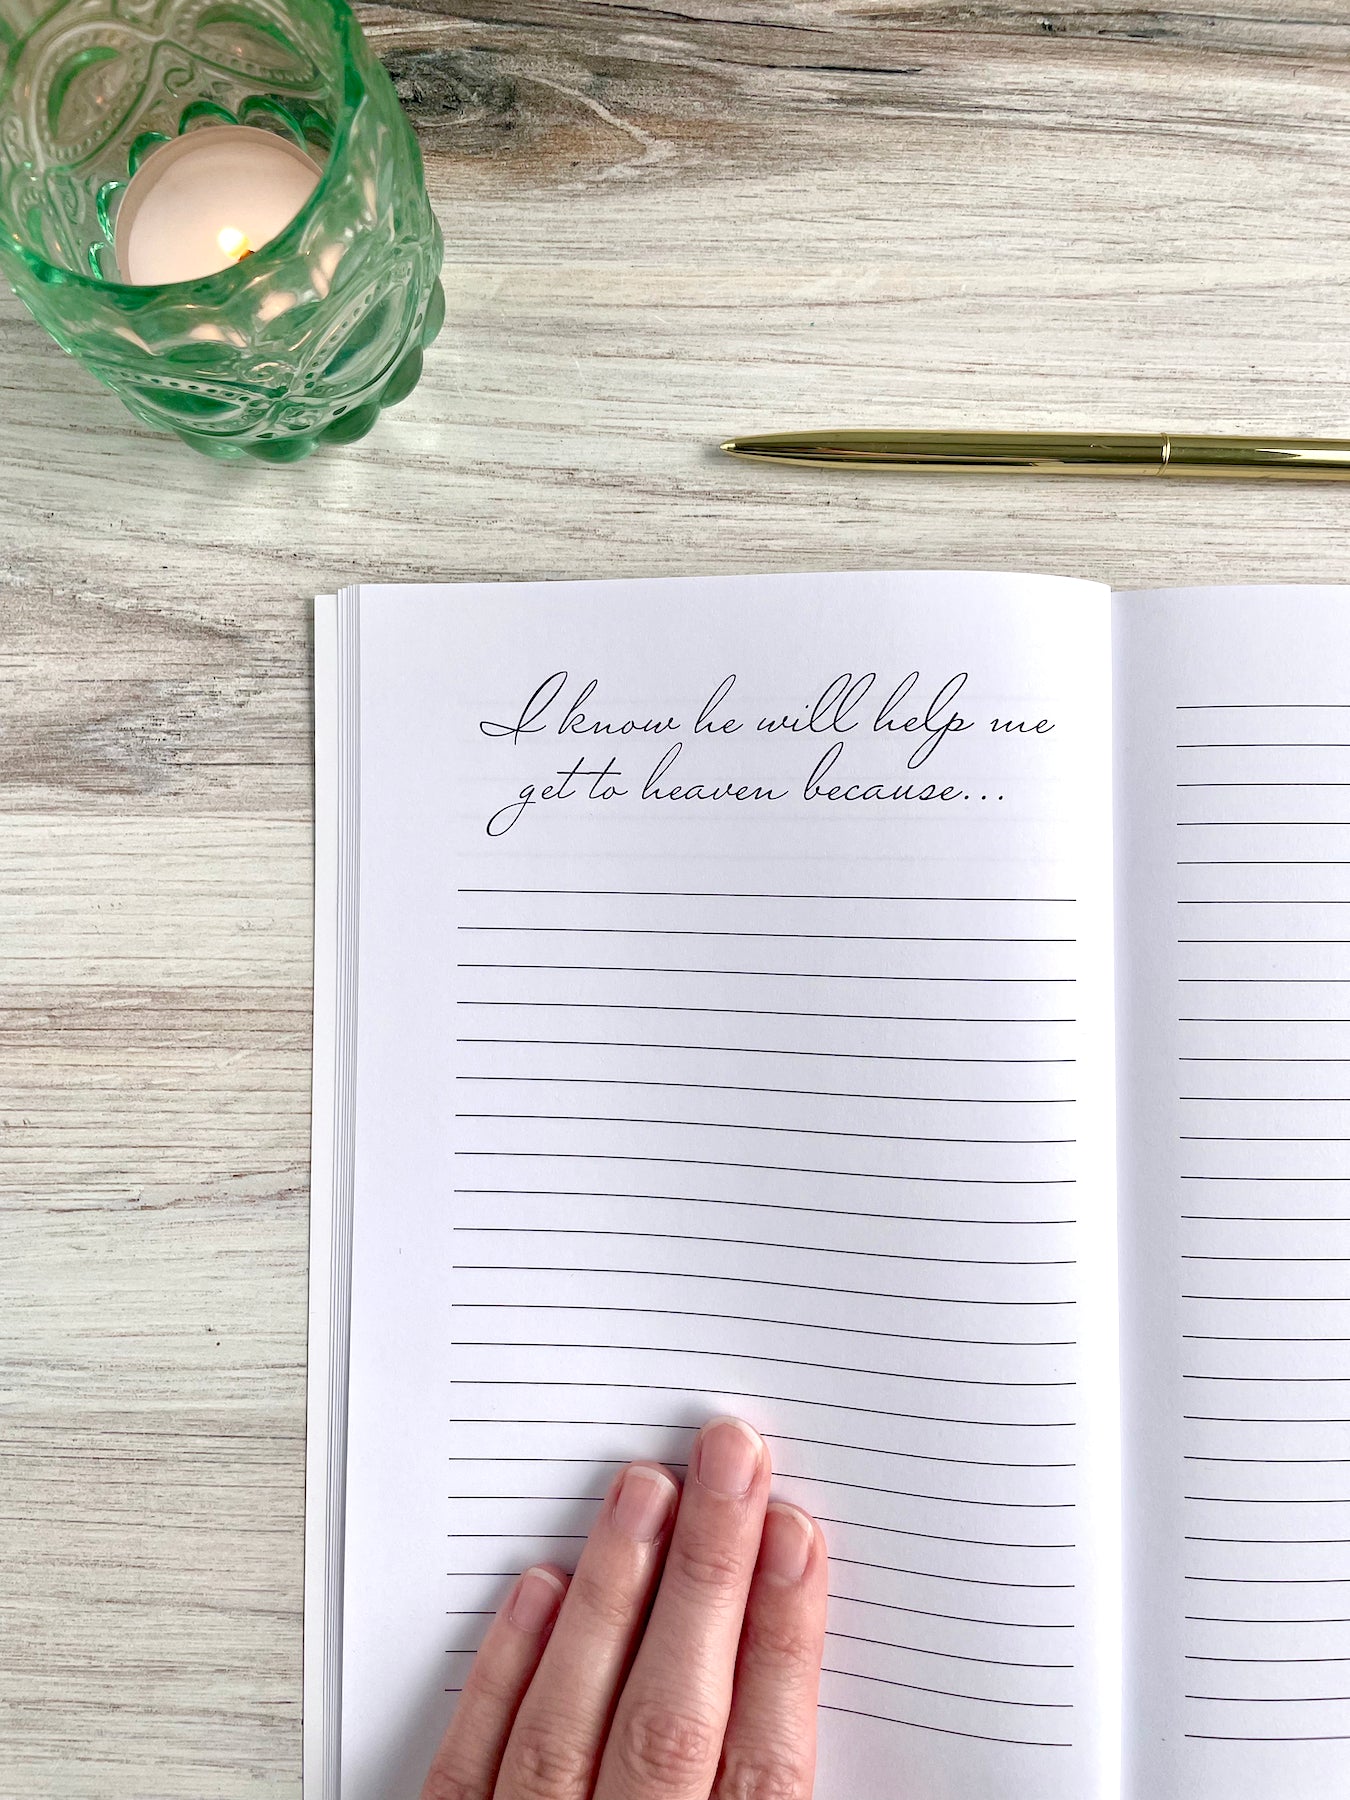 I know he will help me
get to heaven because...